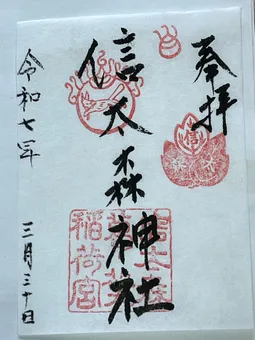 奉拝
信太森神社
令和七年
三月三十日
稲荷宮